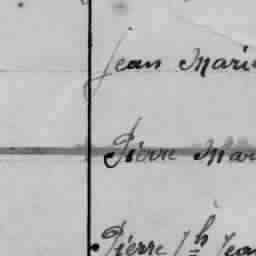 Jean Mari
Pierre Mar
Pierre Jh Jean